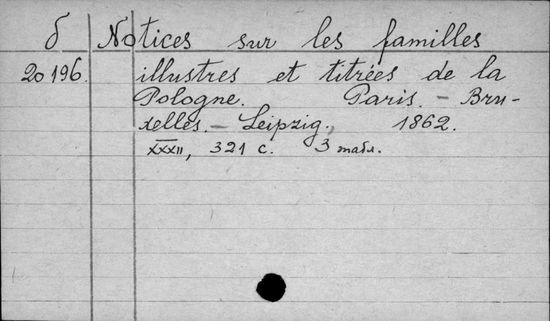 δ Notices sur les familles
20196. illustres et titrées de la
Pologne. Paris. – Bru-
xelles. – Leipzig., 1862.
XXXII, 321 с. 3 табл.